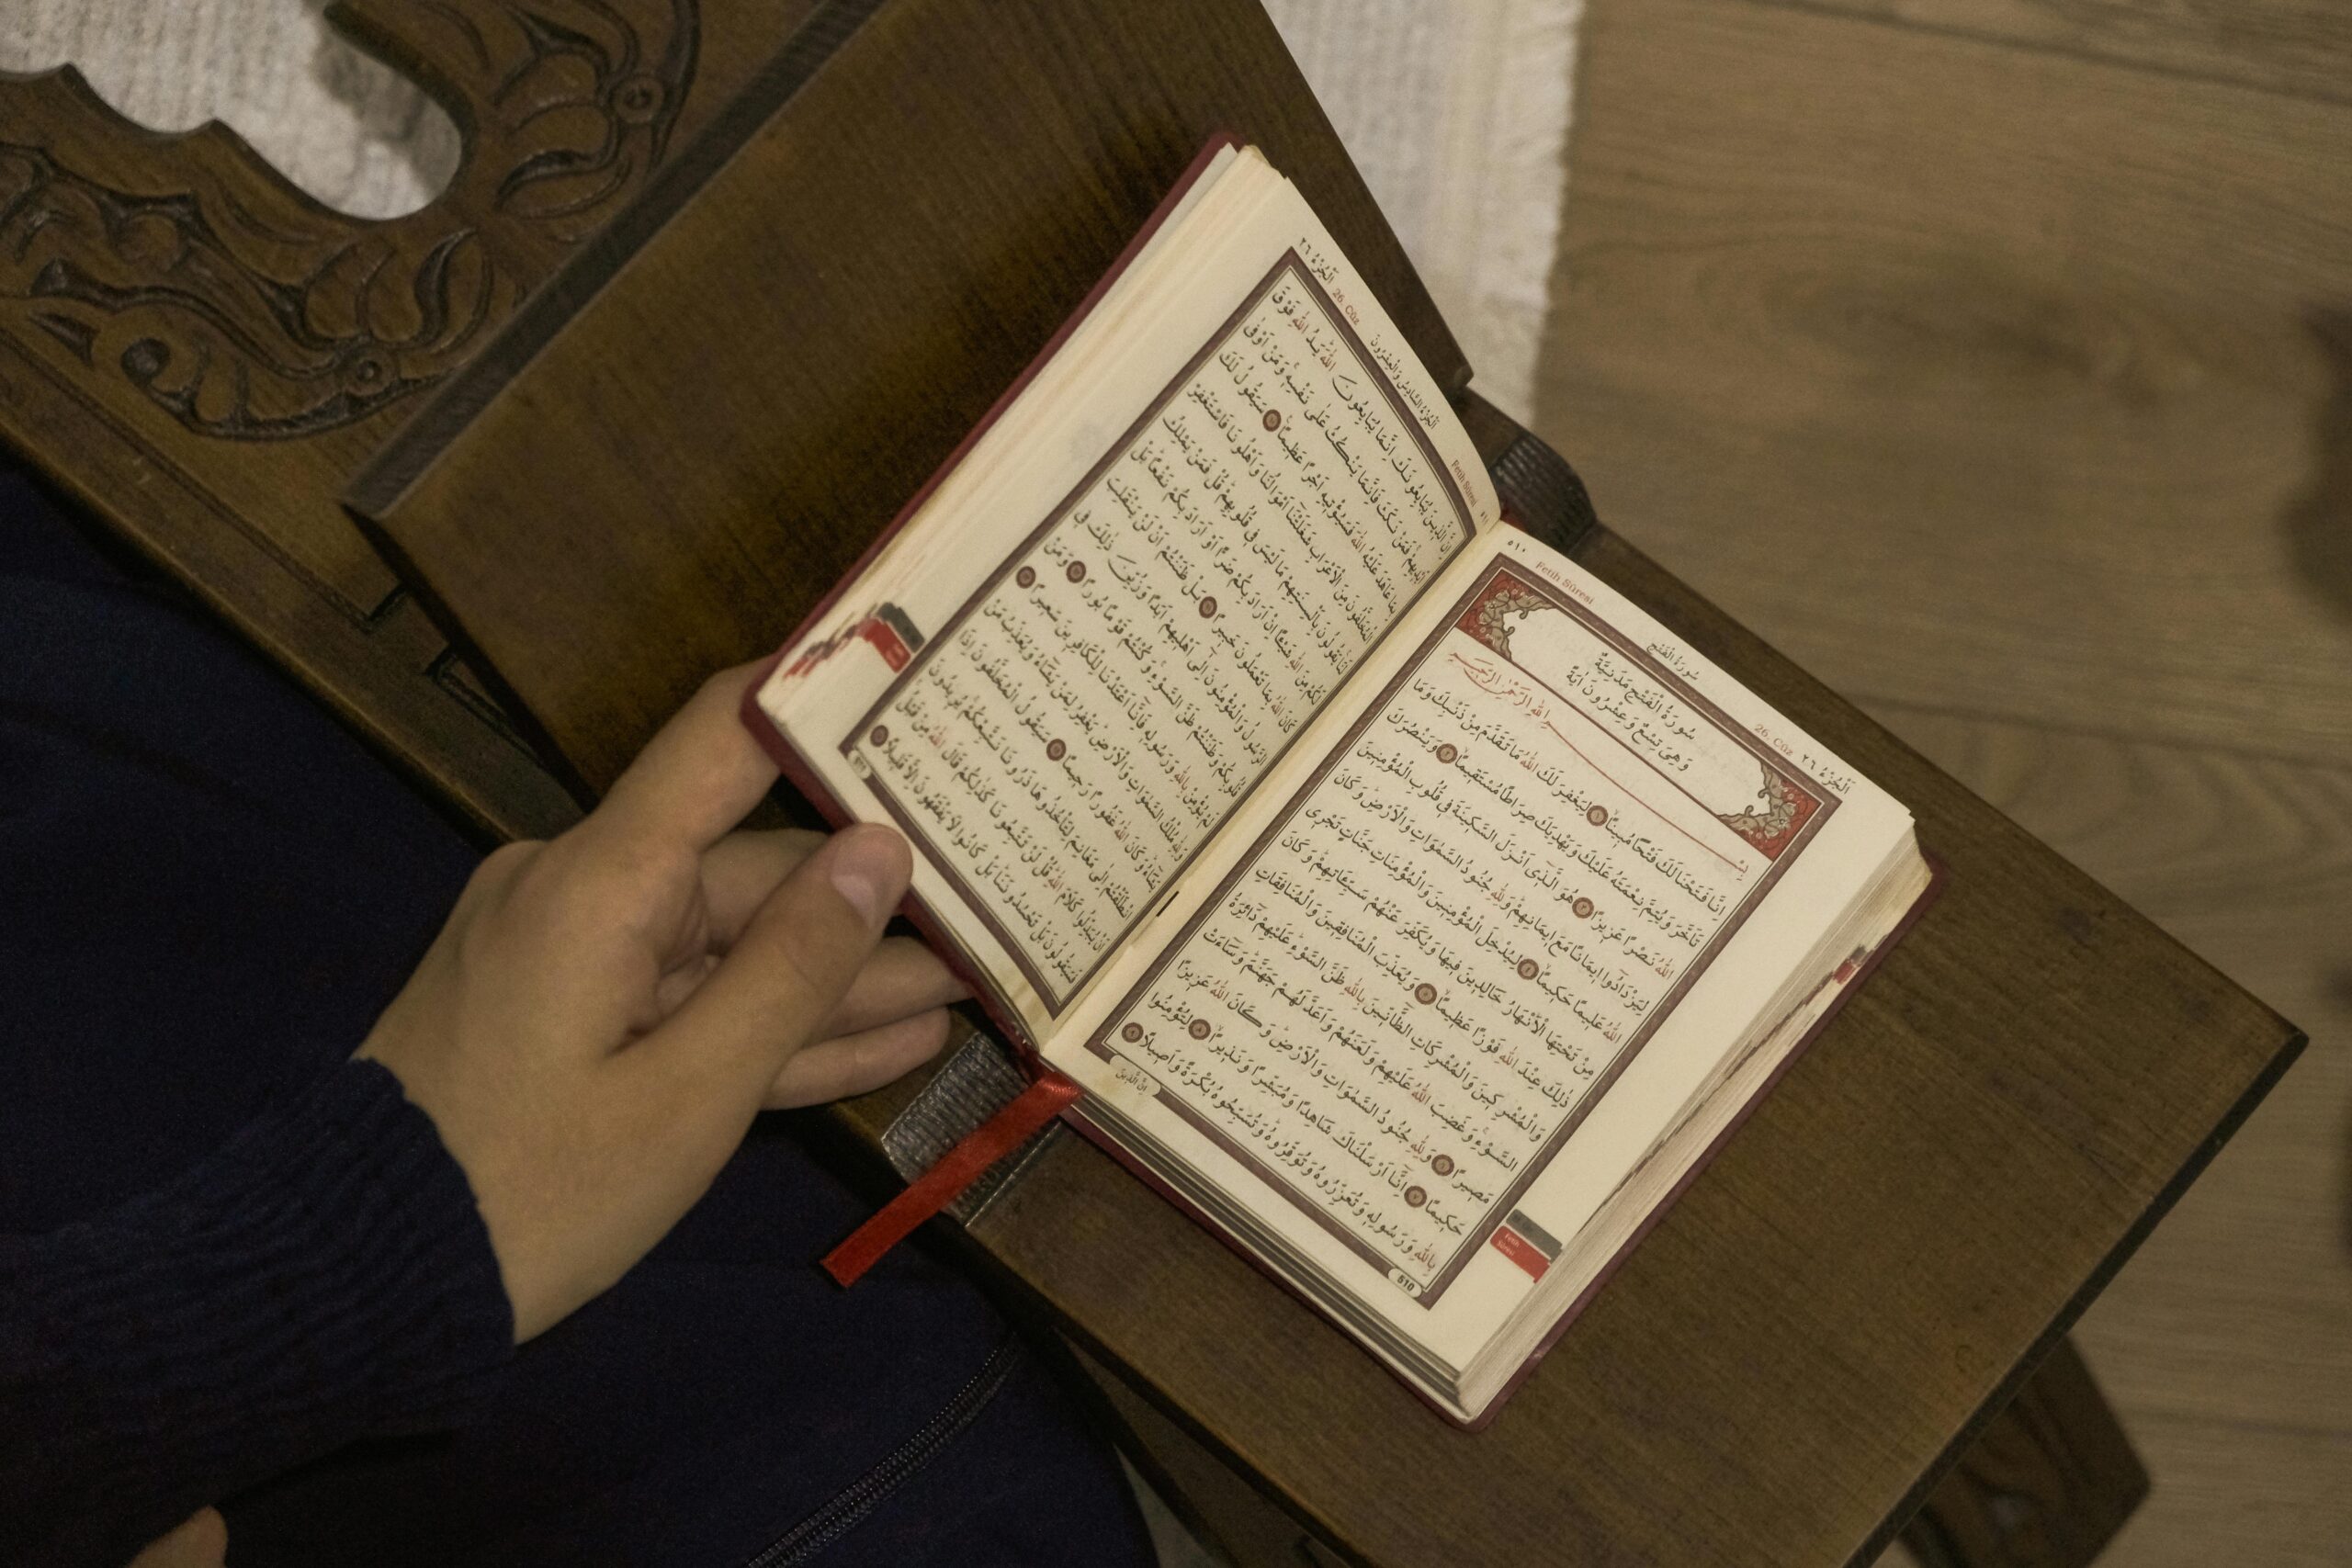 ٥١٠
Fetih Sûresi
سُورَةُ الْفَتْحِ
26. Cüz
اَلْجُزْءُ ٢٦
سُورَةُ الْفَتْحِ مَدَنِيَّةٌ
وَهِيَ تِسْعٌ وَعِشْرُونَ اٰيَةً
بِسْمِ اللّٰهِ الرَّحْمٰنِ الرَّحٖيمِ
اِنَّا فَتَحْنَا لَكَ فَتْحًا مُبٖينًاۙ ١ لِيَغْفِرَ لَكَ اللّٰهُ مَا تَقَدَّمَ مِنْ ذَنْبِكَ وَمَا
تَاَخَّرَ وَيُتِمَّ نِعْمَتَهُ عَلَيْكَ وَيَهْدِيَكَ صِرَاطًا مُسْتَقٖيمًاۙ ٢ وَيَنْصُرَكَ
اللّٰهُ نَصْرًا عَزٖيزًا ٣ هُوَ الَّذٖٓى اَنْزَلَ السَّكٖينَةَ فٖى قُلُوبِ الْمُؤْمِنٖينَ
لِيَزْدَادُٓوا اٖيمَانًا مَعَ اٖيمَانِهِمْۜ وَلِلّٰهِ جُنُودُ السَّمٰوَاتِ وَالْاَرْضِۜ وَكَانَ
اللّٰهُ عَلٖيمًا حَكٖيمًاۙ ٤ لِيُدْخِلَ الْمُؤْمِنٖينَ وَالْمُؤْمِنَاتِ جَنَّاتٍ تَجْرٖى
مِنْ تَحْتِهَا الْاَنْهَارُ خَالِدٖينَ فٖيهَا وَيُكَفِّرَ عَنْهُمْ سَيِّـَٔاتِهِمْۜ وَكَانَ
ذٰلِكَ عِنْدَ اللّٰهِ فَوْزًا عَظٖيمًاۙ ٥ وَيُعَذِّبَ الْمُنَافِقٖينَ وَالْمُنَافِقَاتِ
وَالْمُشْرِكٖينَ وَالْمُشْرِكَاتِ الظَّٓانّٖينَ بِاللّٰهِ ظَنَّ السَّوْءِۜ عَلَيْهِمْ دَٓائِرَةُ
السَّوْءِۚ وَغَضِبَ اللّٰهُ عَلَيْهِمْ وَلَعَنَهُمْ وَاَعَدَّ لَهُمْ جَهَنَّمَۜ وَسَٓاءَتْ
مَصٖيرًا ٦ وَلِلّٰهِ جُنُودُ السَّمٰوَاتِ وَالْاَرْضِۜ وَكَانَ اللّٰهُ عَزٖيزًا
حَكٖيمًا ٧ اِنَّٓا اَرْسَلْنَاكَ شَاهِدًا وَمُبَشِّرًا وَنَذٖيرًاۙ ٨ لِتُؤْمِنُوا
بِاللّٰهِ وَرَسُولِهٖ وَتُعَزِّرُوهُ وَتُوَقِّرُوهُۜ وَتُسَبِّحُوهُ بُكْرَةً وَاَصٖيلًا ٩
510
اِنَّ الَّذٖينَ
Fetih Sûresi
٥١١
Fetih Sûresi
اَلْجُزْءُ السَّادِسُ وَالْعِشْرُونَ
26. Cüz
اَلْجُزْءُ ٢٦
اِنَّ الَّذٖينَ يُبَايِعُونَكَ اِنَّمَا يُبَايِعُونَ اللّٰهَۜ يَدُ اللّٰهِ فَوْقَ
اَيْدٖيهِمْۚ فَمَنْ نَكَثَ فَاِنَّمَا يَنْكُثُ عَلٰى نَفْسِهٖۚ وَمَنْ اَوْفٰى
بِمَا عَاهَدَ عَلَيْهُ اللّٰهَ فَسَيُؤْتٖيهِ اَجْرًا عَظٖيمًا ١٠ سَيَقُولُ لَكَ
الْمُخَلَّفُونَ مِنَ الْاَعْرَابِ شَغَلَتْنَٓا اَمْوَالُنَا وَاَهْلُونَا فَاسْتَغْفِرْ
لَنَاۚ يَقُولُونَ بِاَلْسِنَتِهِمْ مَا لَيْسَ فٖى قُلُوبِهِمْۜ قُلْ فَمَنْ يَمْلِكُ
لَكُمْ مِنَ اللّٰهِ شَيْـًٔا اِنْ اَرَادَ بِكُمْ ضَرًّا اَوْ اَرَادَ بِكُمْ نَفْعًاۜ بَلْ
كَانَ اللّٰهُ بِمَا تَعْمَلُونَ خَبٖيرًا ١١ بَلْ ظَنَنْتُمْ اَنْ لَنْ يَنْقَلِبَ
الرَّسُولُ وَالْمُؤْمِنُونَ اِلٰٓى اَهْلٖيهِمْ اَبَدًا وَزُيِّنَ ذٰلِكَ فٖى
قُلُوبِكُمْ وَظَنَنْتُمْ ظَنَّ السَّوْءِۚ وَكُنْتُمْ قَوْمًا بُورًا ١٢ وَمَنْ
لَمْ يُؤْمِنْ بِاللّٰهِ وَرَسُولِهٖ فَاِنَّٓا اَعْتَدْنَا لِلْكَافِرٖينَ سَعٖيرًا ١٣
وَلِلّٰهِ مُلْكُ السَّمٰوَاتِ وَالْاَرْضِۜ يَغْفِرُ لِمَنْ يَشَٓاءُ وَيُعَذِّبُ مَنْ
يَشَٓاءُۜ وَكَانَ اللّٰهُ غَفُورًا رَحٖيمًا ١٤ سَيَقُولُ الْمُخَلَّفُونَ اِذَا
انْطَلَقْتُمْ اِلٰى مَغَانِمَ لِتَأْخُذُوهَا ذَرُونَا نَتَّبِعْكُمْۚ يُرٖيدُونَ
اَنْ يُبَدِّلُوا كَلَامَ اللّٰهِۜ قُلْ لَنْ تَتَّبِعُونَا كَذٰلِكُمْ قَالَ اللّٰهُ مِنْ قَبْلُۚ
فَسَيَقُولُونَ بَلْ تَحْسُدُونَنَاۜ بَلْ كَانُوا لَا يَفْقَهُونَ اِلَّا قَلٖيلًا ١٥
511